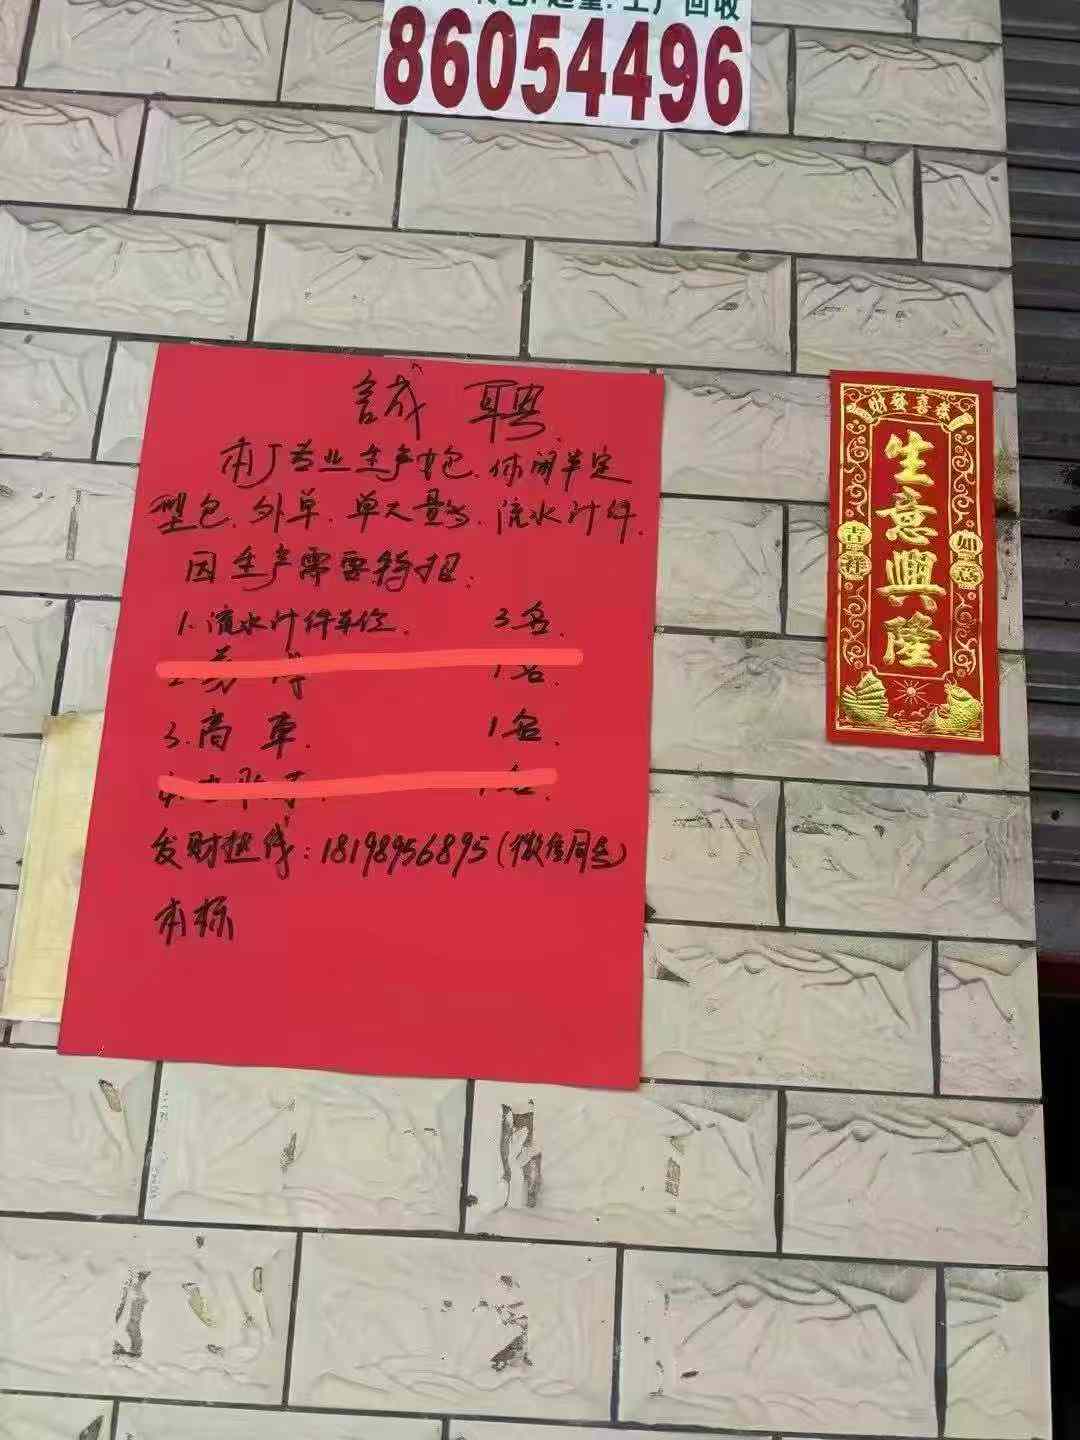 工厂回收
86054496
誠 聘
本厂专业生产女包、休闲半定
型包、外单、单大量多、流水计件.
因生产需要特招:
1. 流水计件车位. 3名.
1名.
3. 高车. 1名.
名.
发财热线: 18198956895 (微信同号)
本栋
財發喜恭
生意興隆
吉祥
如意